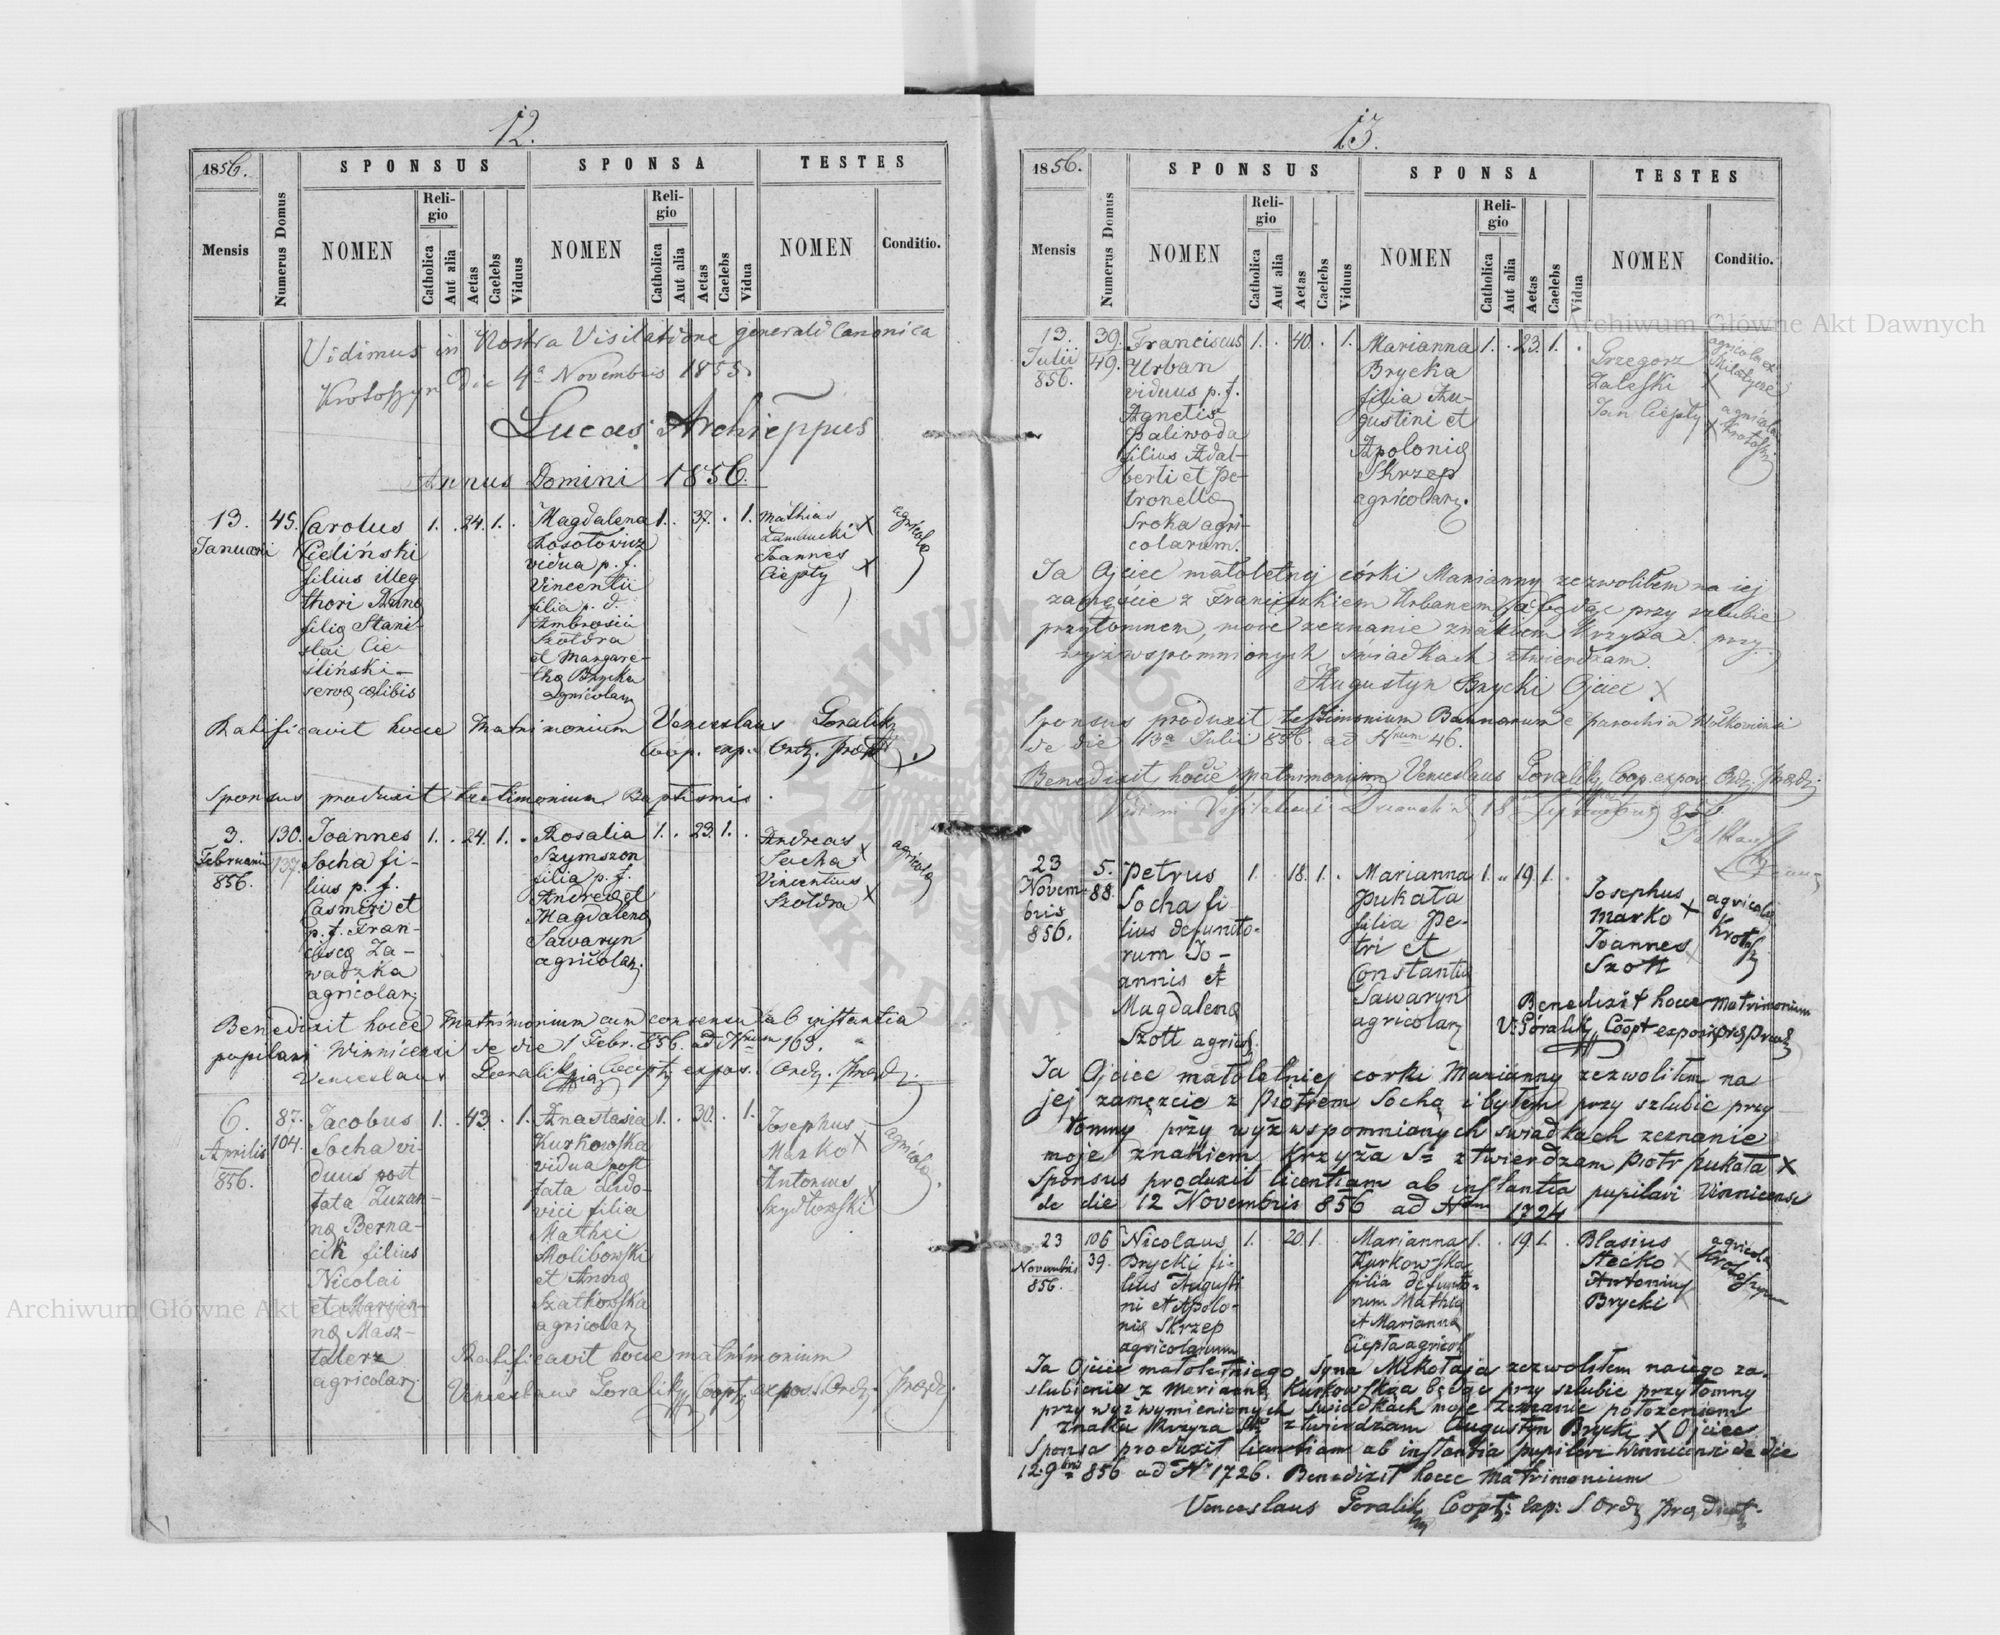 12.
1856.
SPONSUS
SPONSA
TESTES
Mensis
Numerus Domus
NOMEN
Religio
Catholica
Aut alia
Aetas
Caelebs
Viduus
NOMEN
Religio
Catholica
Aut alia
Aetas
Caelebs
Vidua
NOMEN
Conditio.
Vidimus in Nostra Visitatione generali Canonica
Krotoszyn die 4ª Novembris 1855.
Lucas Archieppus
Annus Domini 1856.
13.
Januarii
45.
Carolus
Cieliński
filius illeg
thori Annæ
filiæ Stani
slai Cie-
śliński-
servæ cælibis
1. . 24. 1. .
Magdalena
Kosołowicz
vidua p. f.
Vincentii
filia p. d.
Ambrosii
Szołdra
et Margare-
thæ Brycka
agricolarꝫ
1. . 37. . 1.
Mathias
X
Joannes
Ciepły X
agricolæ
Ratificavit hocce Matrimonium Venceslaus Goralik
Coop. exp. Ordꝫ. Præd.
Sponsus produxit testimonium Baptismis.
3.
Februarii
856.
130.
137.
Joannes
Socha fi-
lius p. f.
Casmiri et
p. f. Fran-
ciscæ Za-
wadzka
agricolarꝫ
1. . 24. 1. .
Rosalia
Szymszon
filia p. f.
Andreæ et
Magdalenæ
Sawaryn
agricolarꝫ.
1. . 23. 1. .
Andreas
Socha X
Vincentius
Szołdra X
agricolæ
Benedixit hocce Matrimonium cum consensu ab instantia
pupilari Winnicensi de die 1 Febr. 856. ad Nrum 163.
Venceslaus Goralik Coopt. expos. Ordꝫ. Prædꝫ.
6.
Aprilis
856.
87.
104.
Jacobus
Socha vi-
duus post
fata Zuzan-
næ Berna-
cik filius
Nicolai
et Marian-
næ Masz-
talerz
agricolarꝫ
1. . 43. . 1.
Anastasia
Kurkowska
vidua post
fata Ludo-
vici filia
Mathei
Molibowski
et Annæ
Szatkowska
agricolarꝫ
1. . 30. . 1.
Josephus
Marko X
Antonius
Szydłowski X
agricolæ.
Ratificavit hocce matrimonium
Venceslaus Goralik Coopt. expos. Ordꝫ. Prædꝫ.
13.
1856.
SPONSUS
SPONSA
TESTES
Mensis
Numerus Domus
NOMEN
Religio
Catholica
Aut alia
Aetas
Caelebs
Viduus
NOMEN
Religio
Catholica
Aut alia
Aetas
Caelebs
Vidua
NOMEN
Conditio.
13.
Julii
856.
39.
49.
Franciscus
Urban
viduus p. f.
Agnetis
Paliwoda
filius Adal-
berti et Pe-
tronellæ
Sroka agri-
colarum.
1. . 40. . 1.
Marianna
Brycka
filia Au-
gustini et
Apoloniæ
Skrzep
agricolarꝫ.
1. . 23. 1. .
Grzegorz
Zaleski X
Jan Ciepły X
agricola ex
Milatycze
agricola
Krotosz
Ja Ojciec małoletnij córki Marianny zezwoliłem na iej
zamęście z Franciszkiem Urbanem, a będąc przy szlubie
przytomnem, moie zeznanie znakiem Krzyża S. przy
wyżwspomnionych świadkach ztwierdzam.
Augustyn Brycki Ojciec X
Sponsus produxit testimonium Bannorum e parochia
de die 13ª Julii 856. ad Nrum 46.
Benedixit hocce matrimonium Venceslaus Goralik Coop. expos. Ordꝫ. Prædꝫ
Vidi in Visitatione Decanali 18 Septembris 856.
23
Novem-
bris
856.
5.
88.
Petrus
Socha fi-
lius defuncto-
rum Jo-
annis et
Magdalenæ
Szott agricolꝫ.
1. . 18. 1. .
Marianna
Pukała
filia Pe-
tri et
Constantiæ
Sawaryn
agricolarꝫ
1. . 19. 1. .
Josephus
Marko X
Joannes
Szott X
agricolæ
Krotosz
Benedixit hocce Matrimonium
V. Góralik Coopt expos. Ord. Præd.
Ja Ojciec małoletniej córki Marianny zezwoliłem na
jej zamęzcie z Piotrem Sochą i byłem przy szlubie przy-
tomny przy wyżwspomnionych świadkach zeznanie
moje znakiem Krzyża S° ztwierdzam Piotr Pukała X
Sponsus produxit licentiam ab instantia pupilari Winnicensi
de die 12 Novembris 856 ad Num 1724
23
Novembris
856.
106
39.
Nicolaus
Brycki fi-
lius Augusti
ni et Apolo-
niæ Skrzep
agricolarum
1. . 20 1.
Marianna
Kurkowska
filia defuncto-
rum Mathiæ
et Mariannæ
Ciepła agricol.
1. . 19 1.
Blasius
Stećko X
Antonius
Brycki X
agricolæ
Krotoszyn
Ja Ojciec małoletniego Syna Mikołaja zezwoliłem na iego za-
ślubienie z Marianną Kurkowską a będąc przy szlubie przytomny
przy wyżwymienionych świadkach moje zeznanie położeniem
znaku Krzyża S° ztwierdzam Augustyn Brycki X Ojciec
Sponsa produxit licentiam ab instantia pupilari Winnicensi de die
12 9bris 856 ad N° 1726. Benedixit hocce Matrimonium
Venceslaus Goralik Coopt: Exp: S. Ordꝫ Prædict.
Archiwum Główne Akt Dawnych
Archiwum Główne Akt Dawnych
ARCHIWUM GŁÓWNE AKT DAWNYCH